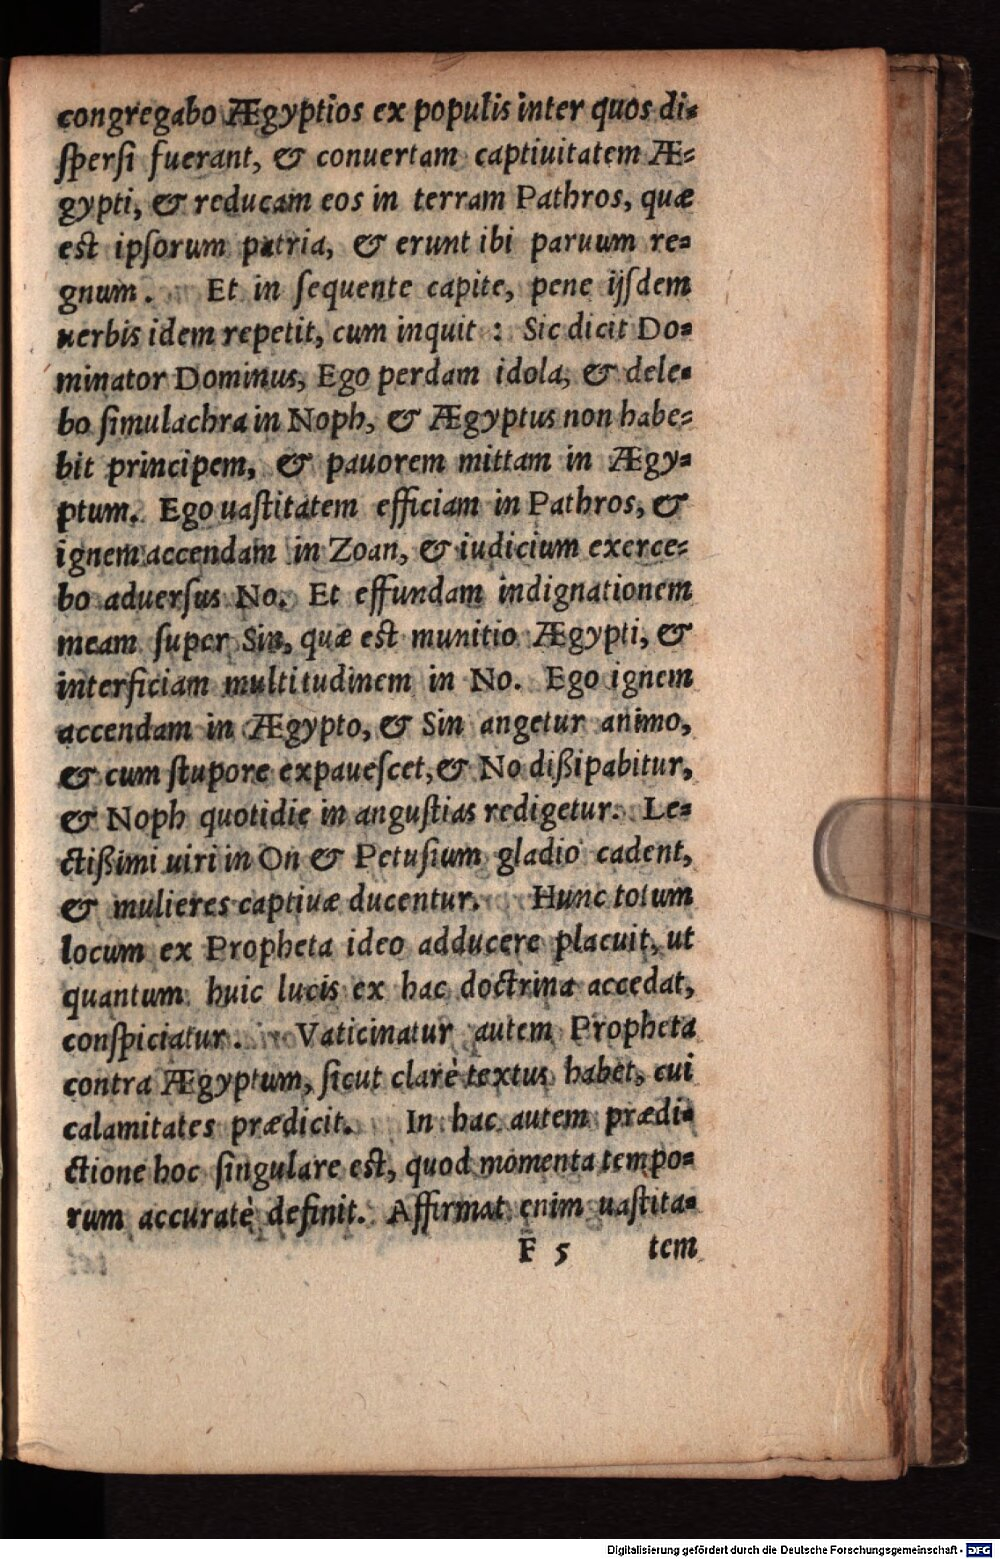 congregabo Ægyptios ex populis inter quos di-
ſperſi fuerant, & conuertam captiuitatem Æ-
gypti, & reducam eos in terram Pathros, quæ
est ipſorum patria, & erunt ibi paruum re-
gnum. Et in ſequente capite, pene ijſdem
uerbis idem repetit, cum inquit : Sic dicit Do-
minator Dominus, Ego perdam idola, & dele-
bo ſimulachra in Noph, & Ægyptus non habe-
bit principem, & pauorem mittam in Ægy-
ptum. Ego uaſtitatem efficiam in Pathros, &
ignem accendam in Zoan, & iudicium exerce-
bo aduerſus No. Et effundam indignationem
meam ſuper Sin, quæ est munitio Ægypti, &
interficiam multitudinem in No. Ego ignem
accendam in Ægypto, & Sin angetur animo,
& cum ſtupore expaueſcet, & No dißipabitur,
& Noph quotidie in anguſtias redigetur. Le-
ctißimi uiri in On & Petuſium gladio cadent,
& mulieres captiuæ ducentur. Hunc totum
locum ex Propheta ideo adducere placuit, ut
quantum huic lucis ex hac doctrina accedat,
conſpiciatur. Vaticinatur autem Propheta
contra Ægyptum, ſicut clarè textus habet, cui
calamitates prædicit. In hac autem prædi-
ctione hoc ſingulare est, quod momenta tempo-
rum accuratè definit. Affirmat enim uaſtita-
F 5 tem
Digitalisierung gefördert durch die Deutsche Forschungsgemeinschaft - DFG